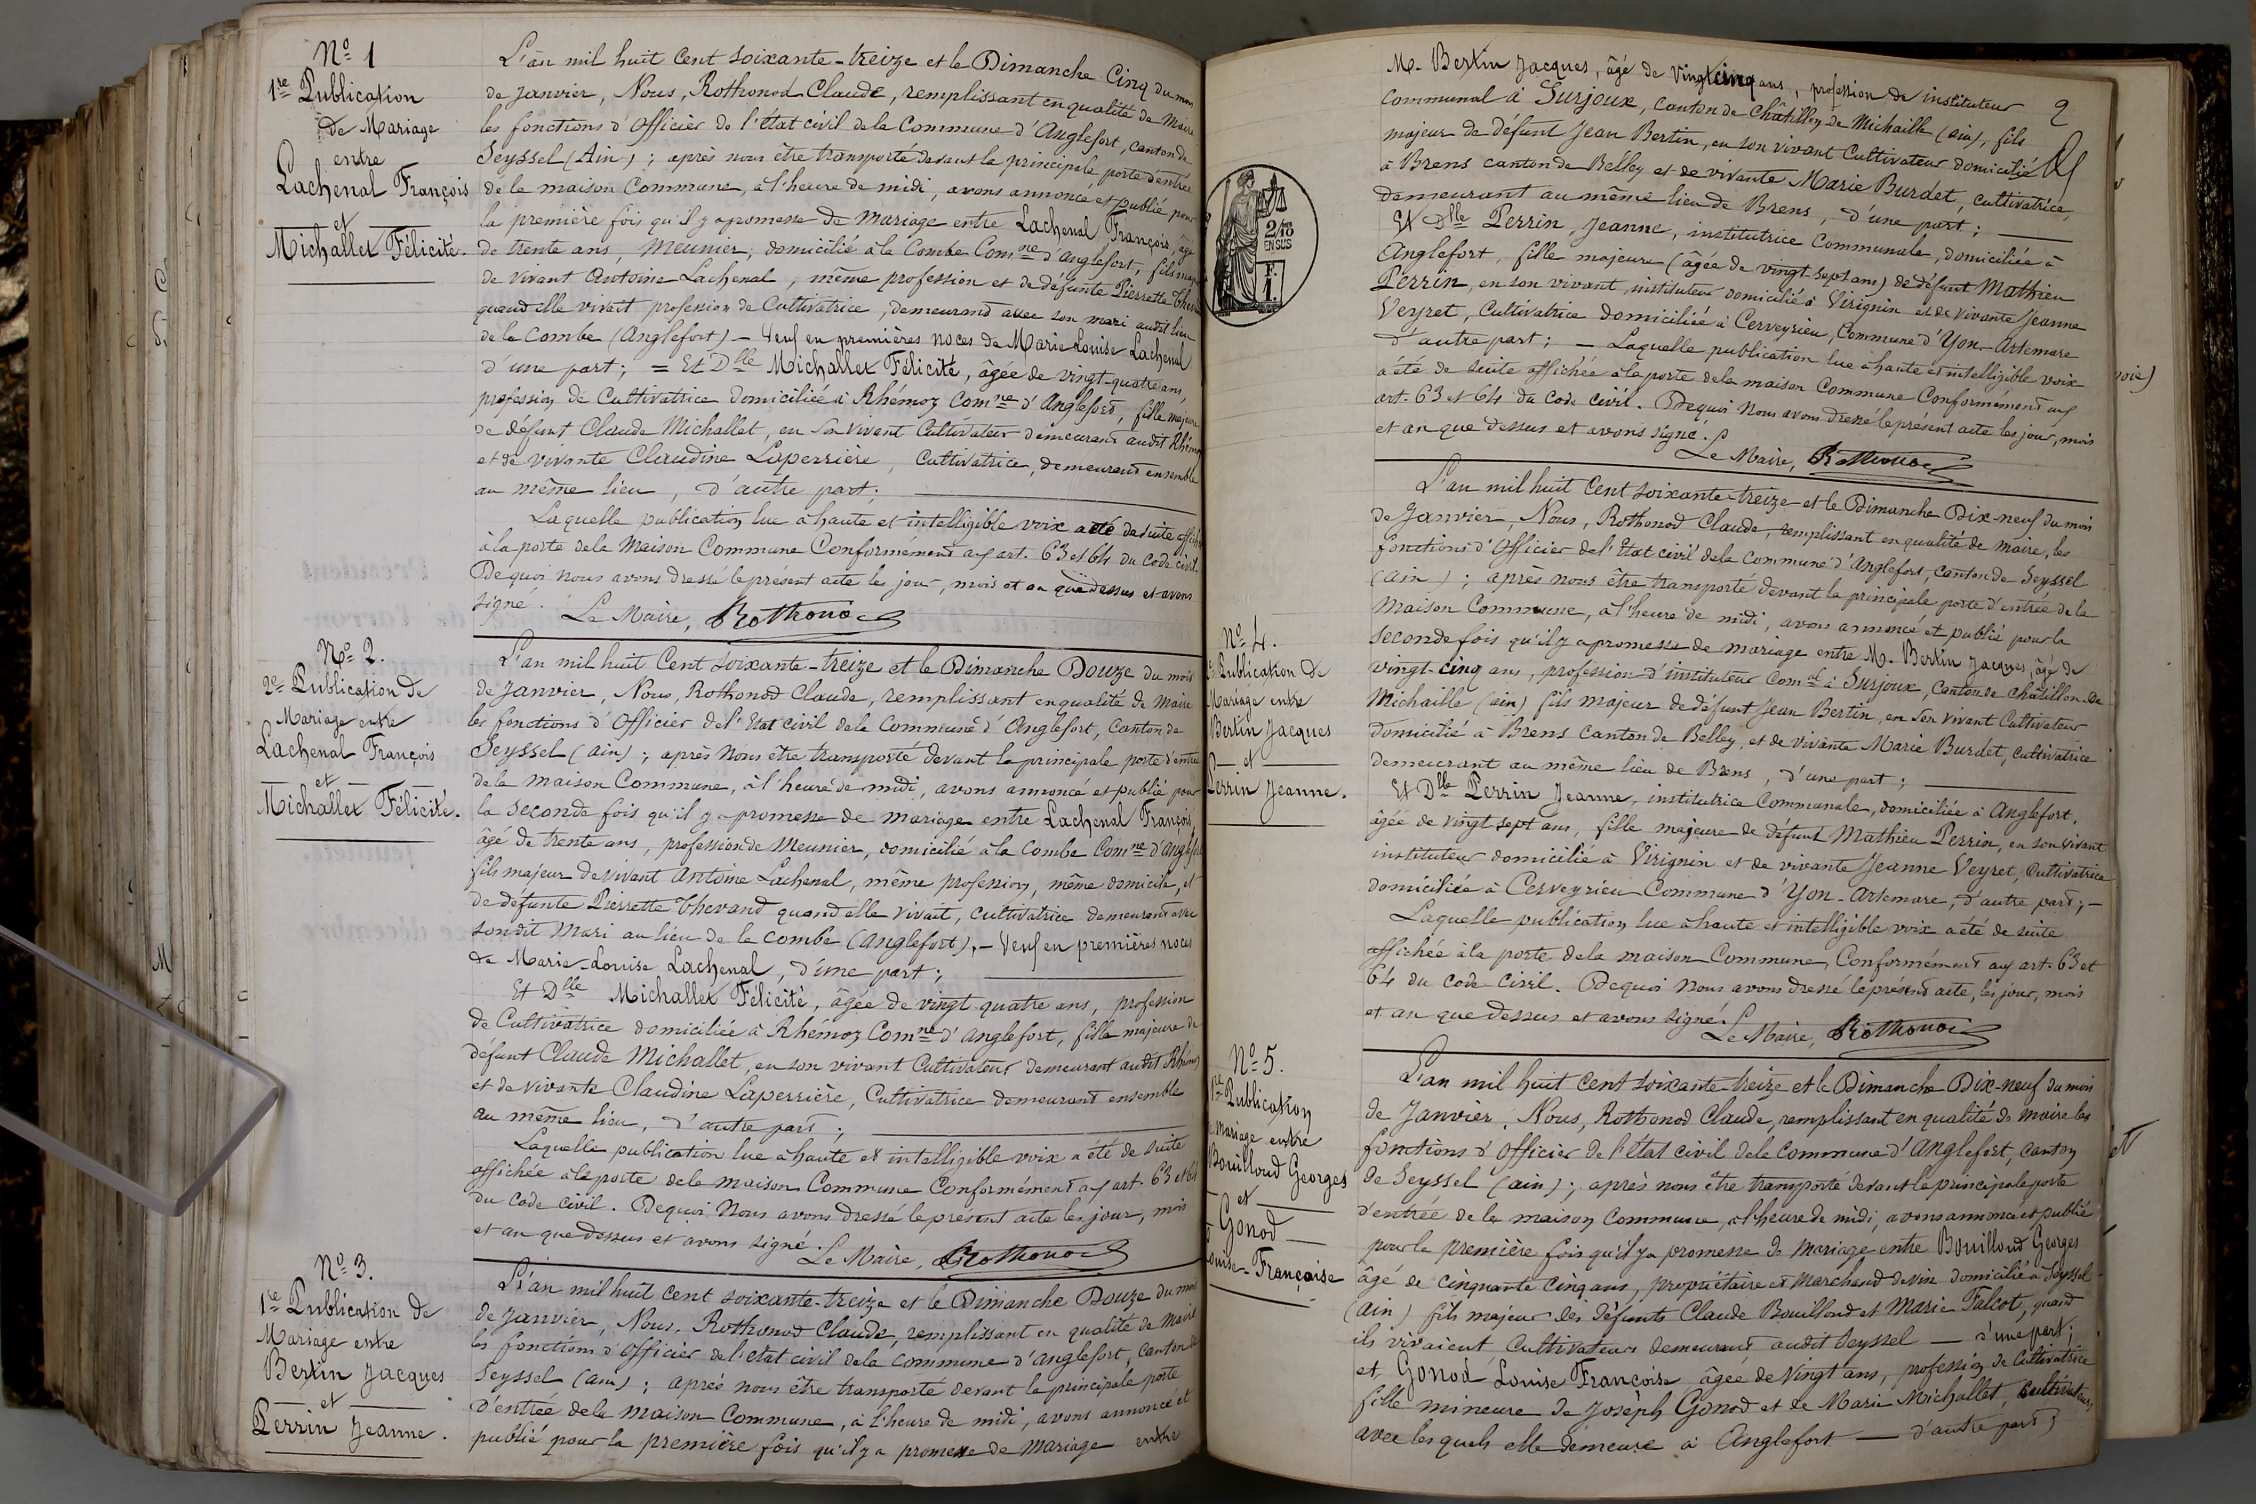 Nº 1
1re Publication
de Mariage
entre
Lachenal François
et
Michallet Félicité.
L'an mil huit Cent soixante-treize et le Dimanche Cinq du mois
de Janvier, Nous, Rothonod Claude, remplissant en qualité de Maire
les fonctions d'Officier de l'état civil de la Commune d'Anglefort, canton de
Seyssel (Ain) ; après nous être transporté devant la principale porte d'entrée
de la maison Commune, à l'heure de midi, avons annoncé et publié pour
la première fois qu'il y a promesse de mariage entre Lachenal François, âgé
de trente ans, Meunier, domicilié à la Combe Comne d'Anglefort, fils maj
de vivant Antoine Lachenal, même profession et de défunte Pierrette
quand elle vivait profession de Cultivatrice, demeurand avec son mari audit lieu
de la Combe (Anglefort) — Veuf en premières noces de Marie Louise Lachenal
d'une part; = Et Dlle Michallet Félicité, âgée de vingt-quatre ans,
profession de Cultivatrice domiciliée à Rhémoz Comne d'Anglefort, fille majeure
de défunt Claude Michallet, en son vivant Cultivateur demeurant audit Rhémoz
et de vivante Claudine Laperrière, Cultivatrice, demeurant ensemble
au même lieu, d'autre part;
Laquelle publication lue à haute et intelligible voix a été de suite affichée
à la porte de la Maison Commune Conformément aux art. 63 et 64 du Code civil.
De quoi nous avons dressé le présent acte les jour, mois et an que dessus et avons
signé. Le Maire, CRothonod
Nº 2.
2e Publication de
Mariage entre
Lachenal François
et
Michallet Félicité.
L'an mil huit Cent soixante-treize et le Dimanche Douze du mois
de Janvier, Nous, Rothonod Claude, remplissant en qualité de Maire
les fonctions d'Officier de l'Etat civil de la Commune d'Anglefort, Canton de
Seyssel (ain) ; après nous être transporté devant la principale porte d'entrée
de la maison Commune, à l'heure de midi, avons annoncé et publié pour
la seconde fois qu'il y a promesse de mariage entre Lachenal François,
âgé de trente ans, profession de Meunier, domicilié à la Combe Comne d'Anglefort
fils majeur de vivant Antoine Lachenal, même profession, même domicile, et
de défunte Pierrette Thevand quand elle vivait, cultivatrice demeurant avec
son dit Mari au lieu de la Combe (Anglefort), — Veuf en premières noces
de Marie-Louise Lachenal, d'une part;
Et Dlle Michallet Félicité, âgée de vingt quatre ans, profession
de Cultivatrice domiciliée à Rhémoz Comne d'Anglefort, fille majeure de
défunt Claude Michallet, en son vivant Cultivateur demeurant audit Rhémoz
et de vivante Claudine Laperrière, Cultivatrice demeurant ensemble
au même lieu, d'autre part;
Laquelle publication lue à haute et intelligible voix a été de suite
affichée à la porte de la maison Commune Conformément aux art. 63 et 64
du Code civil. De quoi Nous avons dressé le présent acte les jour, mois
et an que dessus et avons signé. Le Maire, CRothonod
Nº 3.
1re Publication de
Mariage entre
Bertin Jacques
et
Perrin Jeanne.
L'an mil huit cent soixante-treize et le Dimanche Douze du mois
de Janvier, Nous, Rothonod Claude, remplissant en qualité de Maire
les fonctions d'Officier de l'état civil de la Commune d'Anglefort, canton de
Seyssel (ain) ; après nous être transporté devant la principale porte
d'entrée de la maison Commune, à l'heure de midi, avons annoncé et
publié pour la première fois qu'il y a promesse de mariage entre
M. Bertin Jacques, âgé de vingt cinq ans, profession de instituteur
communal à Surjoux, canton de Châtillon de Michaille (ain), fils
majeur de défunt Jean Bertin, en son vivant Cultivateur domicilié
à Brens canton de Belley et de vivante Marie Burdet, cultivatrice,
demeurant au même lieu de Brens, d'une part;
Et Dlle Perrin Jeanne, institutrice Communale, domiciliée à
Anglefort, fille majeure (âgée de vingt-sept ans) de défunt Mathieu
Perrin, en son vivant, instituteur domicilié à Virignin et de vivante Jeanne
Veyret, Cultivatrice domiciliée à Cerveyrieu, Commune d'Yon-Artemare
d'autre part; — Laquelle publication lue à haute et intelligible voix
a été de suite affichée à la porte de la maison Commune Conformément aux
art. 63 et 64 du Code civil. De quoi Nous avons dressé le présent acte les jour, mois
et an que dessus et avons signé.
Le Maire, CRothonod
2
2/10
EN SUS
F.
1.
Nº 4.
Publication de
Mariage entre
Bertin Jacques
et
Perrin Jeanne.
L'an mil huit Cent soixante-treize et le Dimanche Dix-neuf du mois
de Janvier, Nous, Rothonod Claude, remplissant en qualité de maire, les
fonctions d'Officier de l'Etat civil de la commune d'Anglefort, canton de Seyssel
(ain) ; après nous être transporté devant la principale porte d'entrée de la
Maison Commune, à l'heure de midi, avons annoncé et publié pour la
seconde fois qu'il y a promesse de mariage entre M. Bertin Jacques, âgé de
vingt-cinq ans, profession d'instituteur Comal à Surjoux, Canton de Châtillon-de
Michaille (ain) fils majeur de défunt Jean Bertin, en son vivant Cultivateur
domicilié à Brens Canton de Belley, et de vivante Marie Burdet, cultivatrice
demeurant au même lieu de Brens, d'une part;
Et Dlle Perrin Jeanne, institutrice Communale, domiciliée à Anglefort,
âgée de vingt sept ans, fille majeure de défunt Mathieu Perrin, en son vivant
instituteur domicilié à Virignin et de vivante Jeanne Veyret, Cultivatrice
domiciliée à Cerveyrieu Commune d'Yon-Artemare, d'autre part; —
Laquelle publication lue à haute et intelligible voix a été de suite
affichée à la porte de la maison Commune, Conformément aux art. 63 et
64 du Code Civil. De quoi Nous avons dressé le présent acte, les jour, mois
et an que dessus et avons signé.
Le Maire, CRothonod
Nº 5.
1re Publication
mariage entre
Bouilloud Georges
et
Gonod
Louise-Françoise
L'an mil huit cent soixante-treize et le Dimanche Dix-neuf du mois
de Janvier. Nous, Rothonod Claude, remplissant en qualité de maire les
fonctions d'Officier de l'état civil de la Commune d'Anglefort, Canton
de Seyssel (ain) ; après nous être transporté devant la principale porte
d'entrée de la maison Commune, à l'heure de midi, avons annoncé et publié
pour la première fois qu'il y a promesse de mariage entre Bouilloud Georges
âgé de cinquante cinq ans, propriétaire et Marchand de vin domicilié à Seyssel
(ain) fils majeur des défunts Claude Bouilloud et Marie Falcot, quand
ils vivaient Cultivateurs demeurant audit Seyssel — d'une part;
et Gonod Louise Françoise âgée de Vingt ans, profession de Cultivatrice
fille mineure de Joseph Gonod et de Marie Michallet, Cultivateurs
avec lesquels elle demeure à Anglefort — d'autre part;